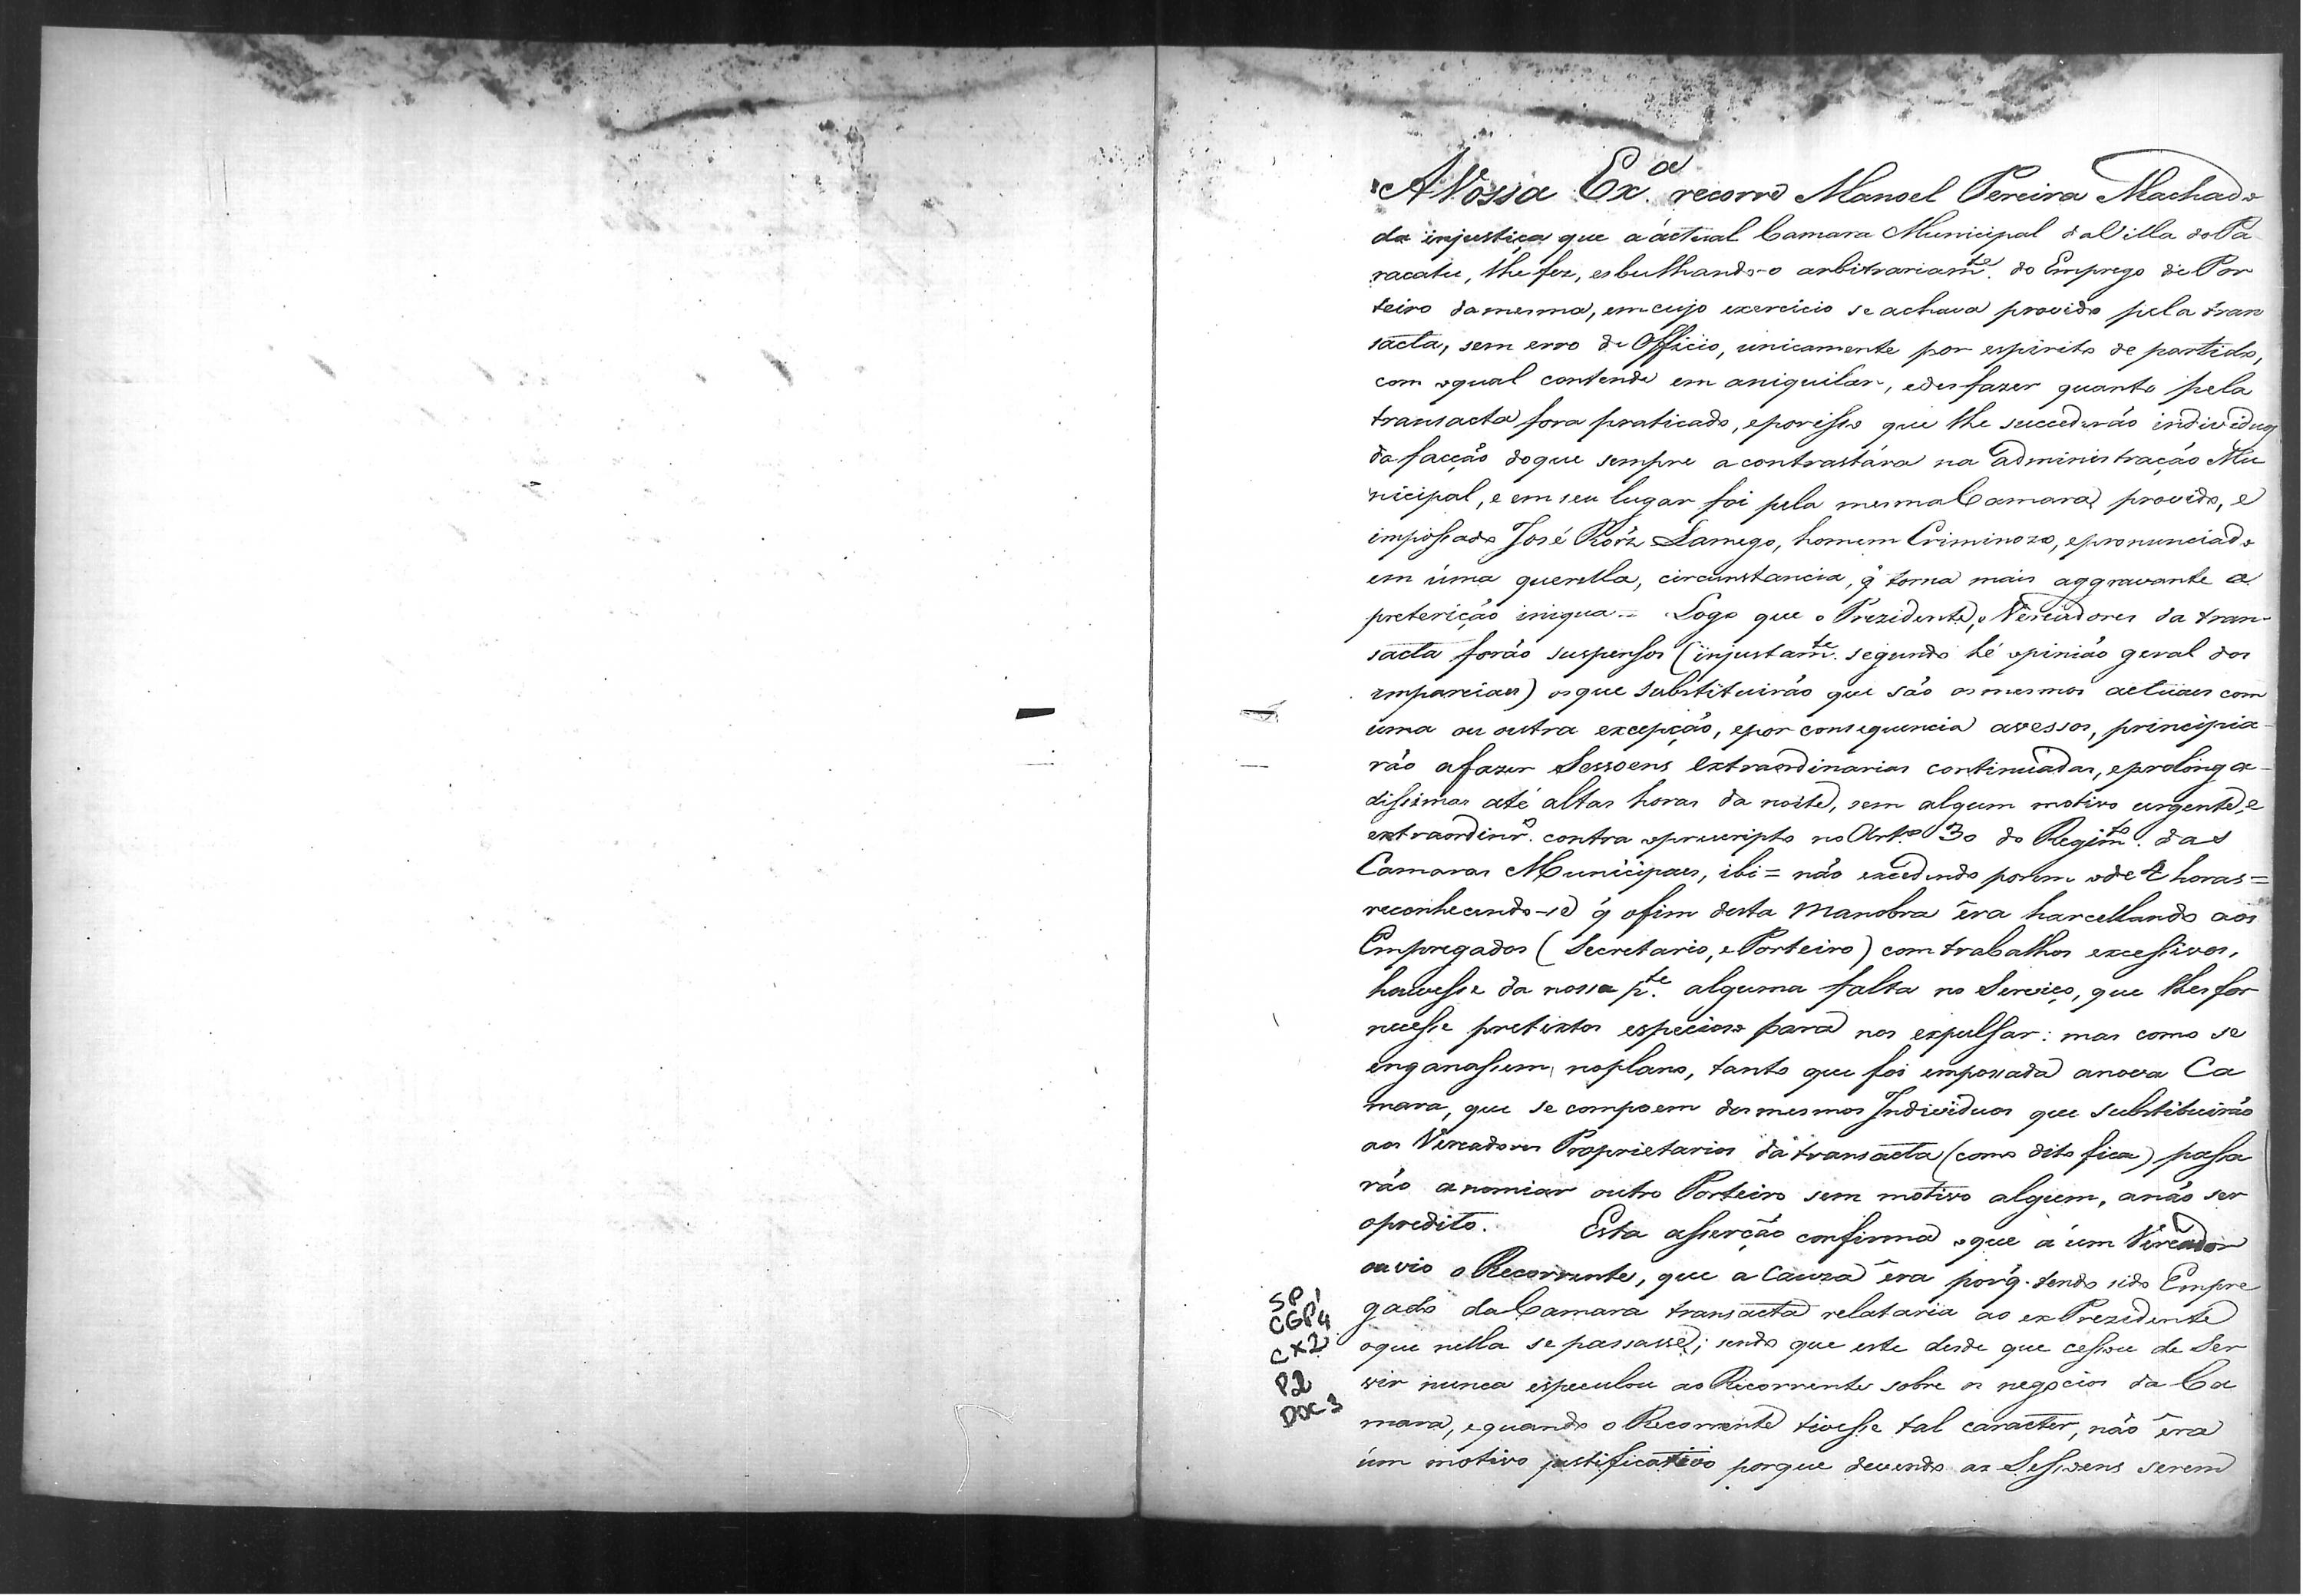 A Vossa Ex.ª recorre Manoel Pereira Machado
da injustiça que a áctual Camara Municipal da Villa do Pa
racatu, lhe fez, esbulhando-o arbitrariam.te do Emprego de Por
teiro da mesma, em cujo exercicio se achava provido pela tran
sacta, sem erro de Officio, unicamente por espirito de partido,
com o qual contende em aniquilar, e desfazer quanto pela
transacta fora praticado, e por isso que lhe succederáo individuos
da facção do que sempre a contrastára na administração Mu
nicipal, e em seu lugar foi pela mesma Camara provido, e
impossado José Roiz Lamego, homem Criminozo, e pronunciado
em úma querella, circunstancia, q̃ torna mais aggravante a
preterição iniqua.. Logo que o Prezidente, e Vereadores da tran-
sacta foráo suspensos (injustam.te segundo hé opinião geral dos
imparciaes) os que substituiráo que são os mesmos actuaes com
uma ou outra excepção, e por consequencia avessos, principia-
ráo a fazer Sessoens extraordinarias continuadas, e prolonga-
dissimas até altas horas da noite, sem algum motivo urgente, e
extraordinr.o contra o prescripto no Art.o 30 do Regim.to das
Camaras Municipaes, ibi = não excedendo porem o de 4 horas =
reconhecendo-se q̃ o fim desta manobra êra harcellando aos
Empregados (Secretario, e Porteiro) com trabalhos excessivos,
houvesse da nossa p.te alguma falta no Serviço, que lhes for
necesse pretextos especioso para nos expulsar: mas como se
enganassem no plano, tanto que foi empossada a nova Ca
mara, que se compoem dos mesmos Individuos que substituiráo
aos Vereadores Proprietarios da transacta (como dito fica) passa
ráo a nomiar outro Porteiro sem motivo algum, a não ser
o predito. Esta asserção confirma o que a úm Vereador
ouvio o Recorrente, que a Cauza êra porq̃. tendo sido Empre
gado da Camara transacta relataria ao ex Prezidente
o que nella se passasse; sendo que este desde que cessou de Ser
vir nunca especulou ao Recorrente sobre os negocios da Ca
mara, e quando o Recorrente tivesse tal caracter, não êra
úm motivo justificativo porque devendo as Sessoens serem
SP 1
CGP4
CX2
P2
DOC3